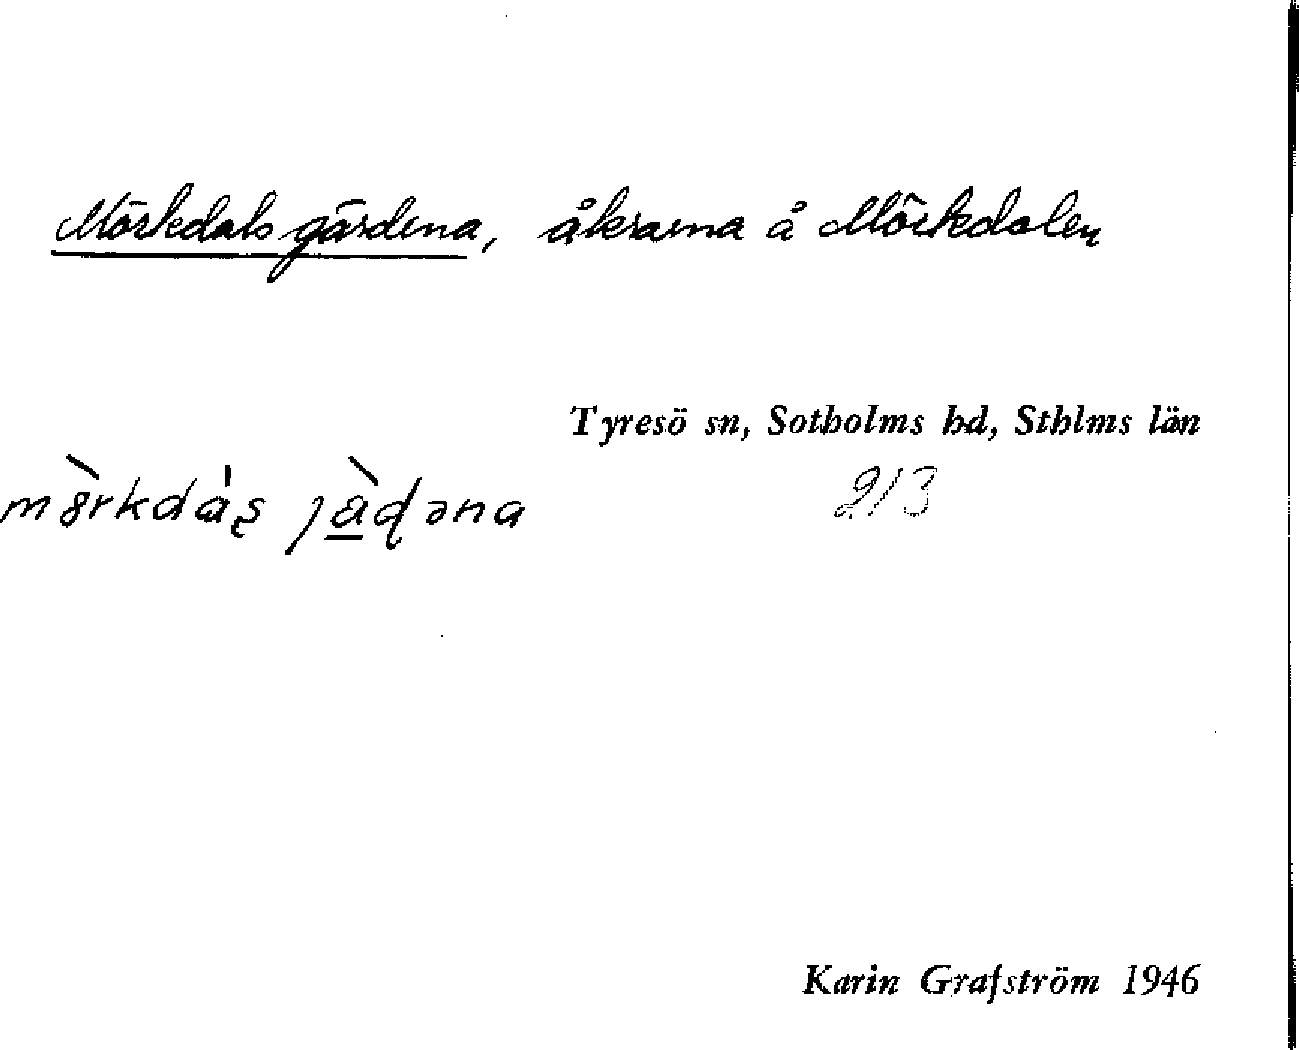 Mörkdals gärdena, åkrarna å Mörkdalen
Tyresö sn, Sotholms hd, Sthlms län
213
Karin Grafström 1946